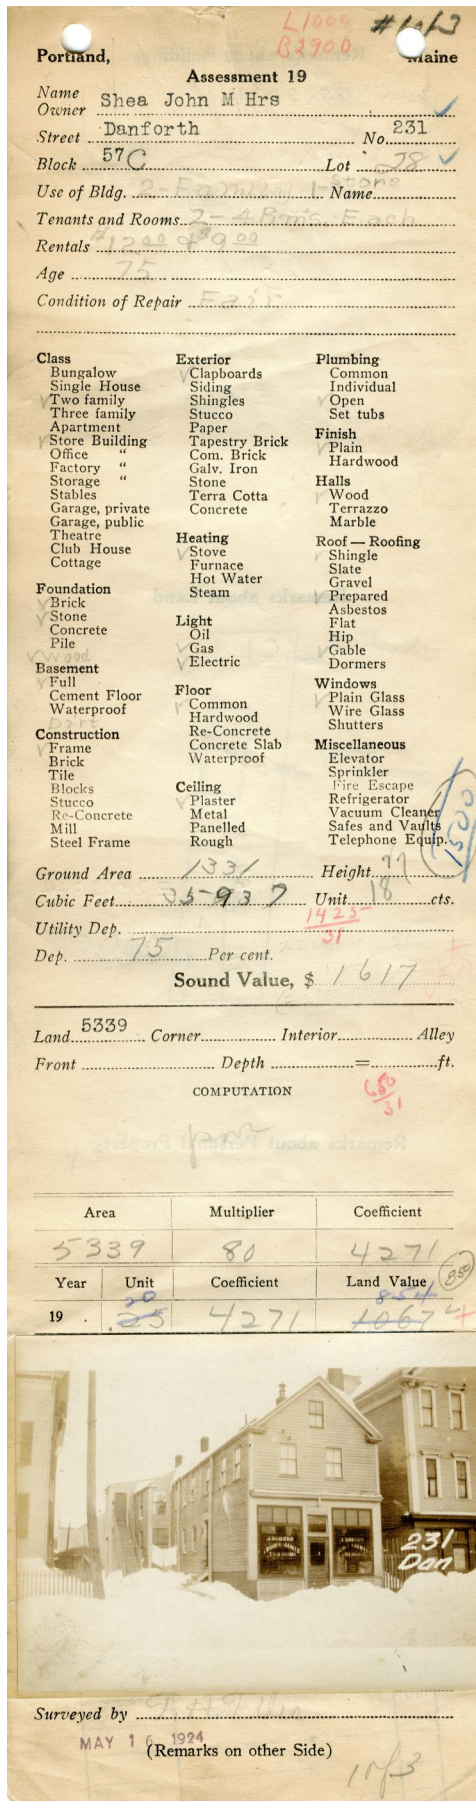 L1000 #1of3
B2900
Portland, Maine
Assessment 19
Name
Owner Shea John M Hrs
Street Danforth No. 231
Block 57C Lot 28
Use of Bldg. 2-Family 1-Store Name
Tenants and Rooms 2-4 Rms. Each
Rentals $12.00 & $9.00
Age 75
Condition of Repair Fair
Class
Bungalow
Single House
Two family
Three family
Apartment
Store Building
Office "
Factory "
Storage "
Stables
Garage, private
Garage, public
Theatre
Club House
Cottage
Foundation
Brick
Stone
Concrete
Pile
Wood
Basement
Full
Cement Floor
Waterproof
Part
Construction
Frame
Brick
Tile
Blocks
Stucco
Re-Concrete
Mill
Steel Frame
Exterior
Clapboards
Siding
Shingles
Stucco
Paper
Tapestry Brick
Com. Brick
Galv. Iron
Stone
Terra Cotta
Concrete
Heating
Stove
Furnace
Hot Water
Steam
Light
Oil
Gas
Electric
Floor
Common
Hardwood
Re-Concrete
Concrete Slab
Waterproof
Ceiling
Plaster
Metal
Panelled
Rough
Plumbing
Common
Individual
Open
Set tubs
Finish
Plain
Hardwood
Halls
Wood
Terrazzo
Marble
Roof — Roofing
Shingle
Slate
Gravel
Prepared
Asbestos
Flat
Hip
Gable
Dormers
Windows
Plain Glass
Wire Glass
Shutters
Miscellaneous
Elevator
Sprinkler
Fire Escape
Refrigerator
Vacuum Cleaner
Safes and Vaults
Telephone Equip.
1500
Ground Area 1331 Height
Cubic Feet 35937 Unit 18 cts.
Utility Dep. 1425
31
Dep. 75 Per cent.
Sound Value, $ 1617
Land 5339 Corner Interior Alley
Front Depth = ft.
COMPUTATION
650
31
Area Multiplier Coefficient
5339 80 4271
Year Unit Coefficient Land Value 850
20 854
19 . 25 4271 1067
231
Dan
Surveyed by
MAY 16 1924
(Remarks on other Side)
1 of 3